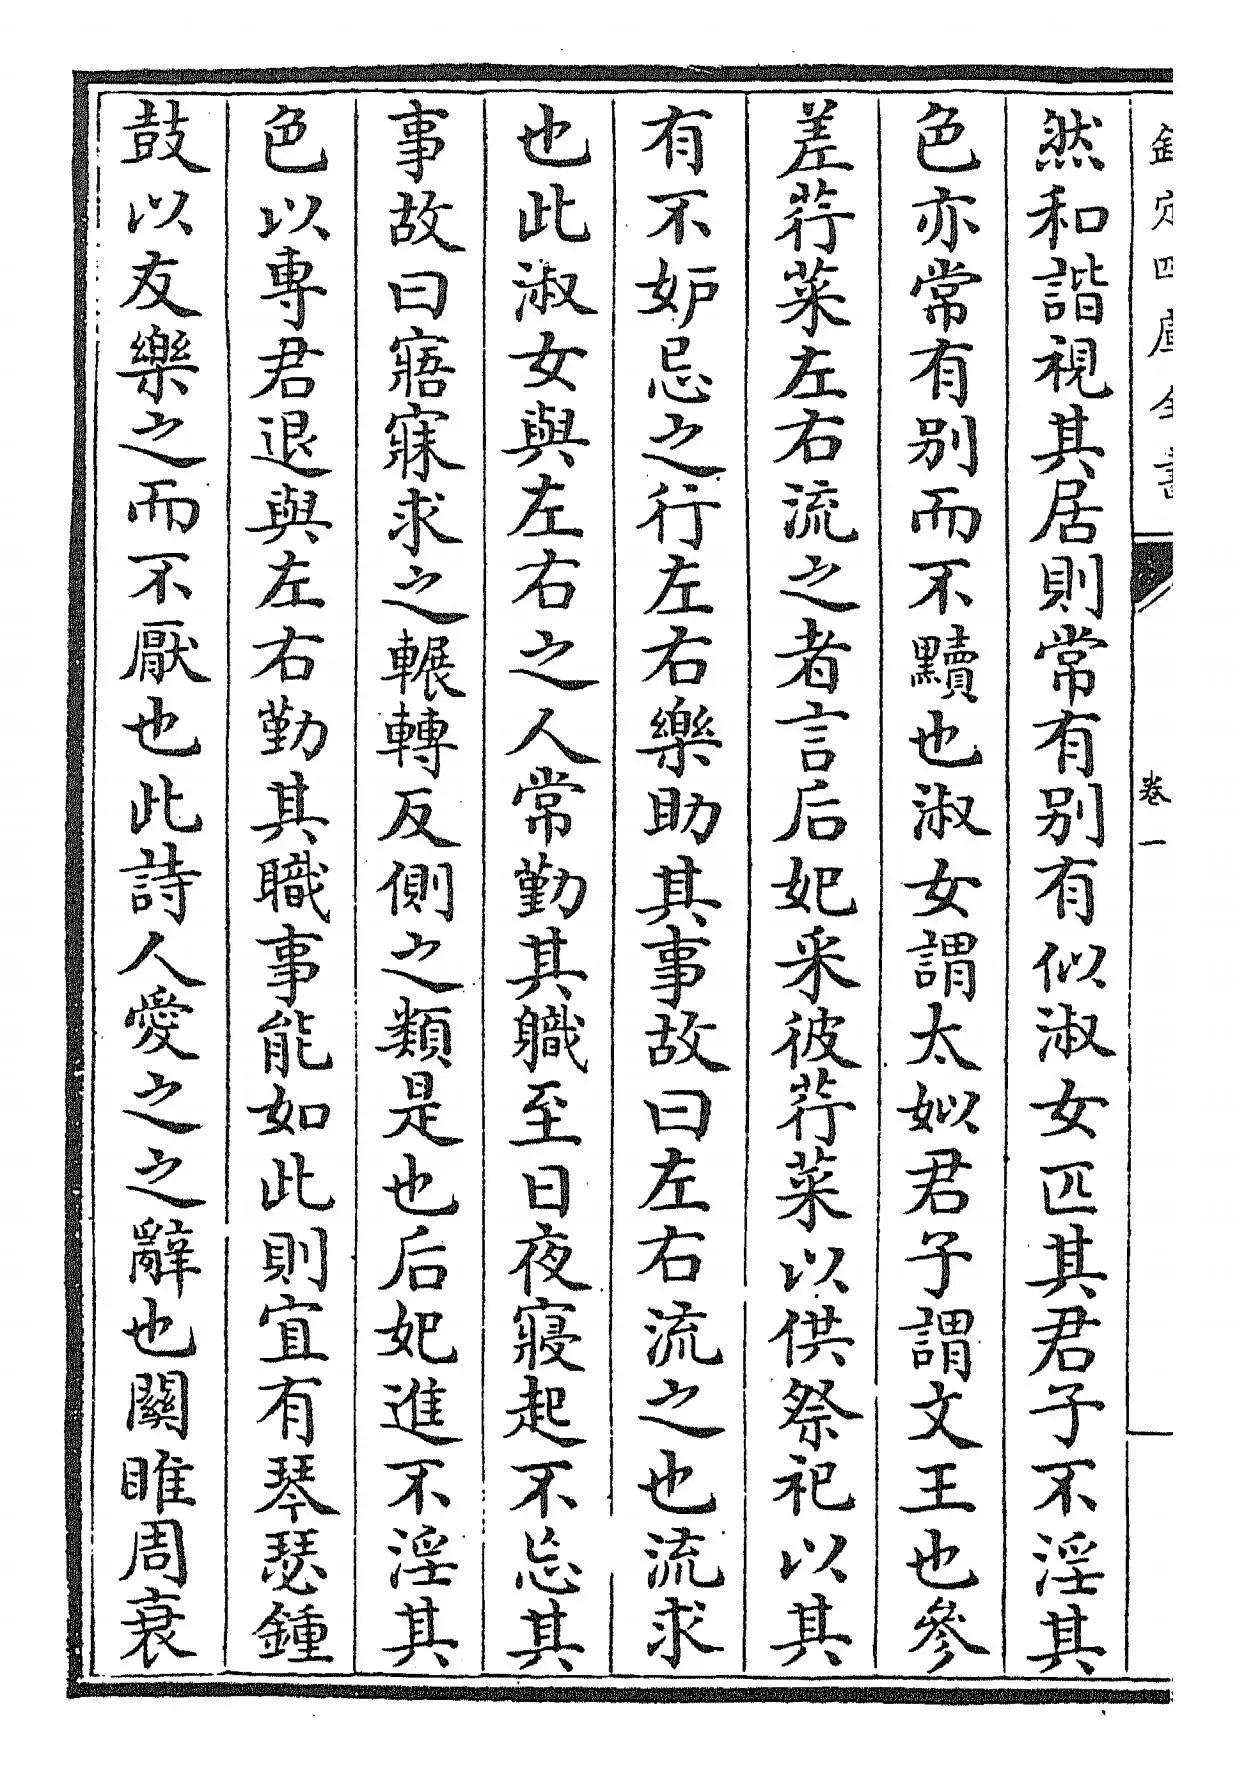 欽定四庫全書
卷一
然和諧視其居則常有别有似淑女匹其君子不淫其
色亦常有别而不黷也淑女謂太姒君子謂文王也參
差荇菜左右流之者言后妃采彼荇菜以供祭祀以其
有不妒忌之行左右樂助其事故曰左右流之也流求
也此淑女與左右之人常勤其職至日夜寢起不忘其
事故曰寤寐求之輾轉反側之類是也后妃進不淫其
色以專君退與左右勤其職事能如此則宜有琴瑟鍾
鼓以友樂之而不厭也此詩人愛之之辭也關雎周衰